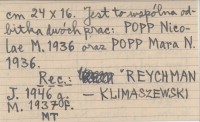 cm 24 x 16. Jest to wspólna od-
bitka dwóch prac: POPP Nico-
lae M. 1936 oraz POPP Mara N.
1936.
Rec.: REYCHMAN
J. 1946 a. — KLIMASZEWSKI
M. 1937
MT